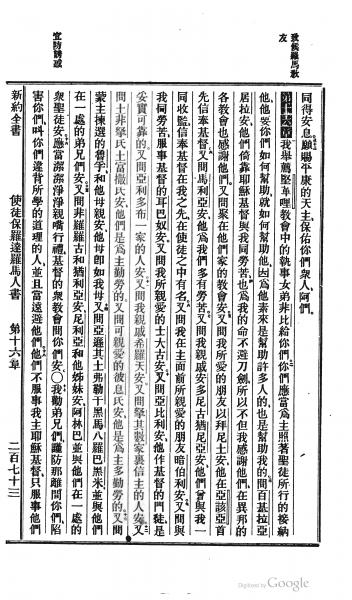 致候羅馬教友
宜防誘惑
同得安息願賜平康的天主保佑你們衆人阿們
第十六章我舉薦堅革哩教會中的執事女弟非比給你們你們應當爲主照著聖徒所行的接納
他他要你們如何幫助就如何幫助他因爲他素來是幫助許多人的也是幫助我的問百基拉亞
居拉安他們倚靠耶穌基督與我同勞苦也爲我的命不避刀劍所以不但我感謝他們在異邦的
各教會也感謝他們又問聚在他們家的教會安又問我所愛的朋友以拜尼土安他在亞該亞首
先信奉基督又問馬利亞安他爲我們多有勞苦又問我親戚安多尼古猶尼亞安他們曾與我一
同收監信奉基督在我之先在使徒之中有名又問我在主面前所親愛的朋友暗伯利安又問與
我同勞苦服事基督的耳巴奴安又問我所親愛的士大古安又問亞比利安他作基督的門徒是
妥實可靠的又問亞利多布一家的人安又問我親戚希羅天安又問拏其數家裏信主的人安又
問土非拏氏土富撒氏安他們是爲主勤勞的又問可親愛的彼息氏安他是爲主多勤勞的又問
蒙主揀選的魯孚和他母親安他母卽如我母又問亞遜其土弗勒干黑馬八羅巴黑米並與他們
在一處的弟兄們安又問非羅羅古和猶利亞安尼利亞和他姊妹安阿林巴並與他們在一處的
衆聖徒安應當潔潔淨淨親嘴行禮基督的衆教會問你們安○我勸弟兄們謹防那離間你們陷
害你們叫你們違背所學的道理的人並且當遠避他們他們不服事我主耶穌基督只服事他們
新約全書 使徒保羅達羅馬人書 第十六章 二百七十三
Digitized by Google